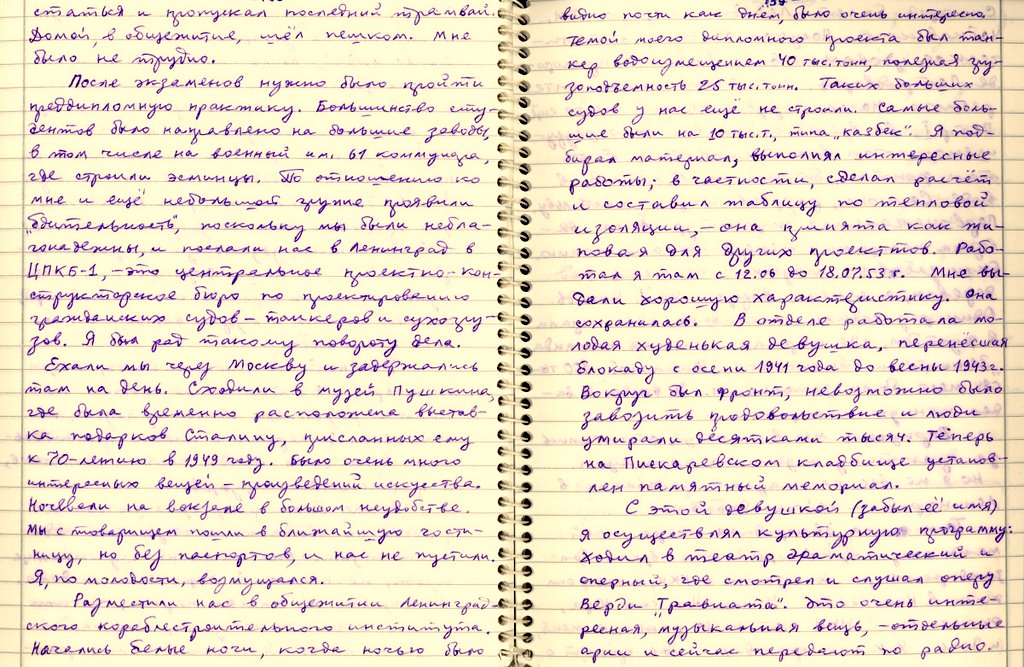 статья и пропускал последний трамвай.
Домой, в общежитие, шёл пешком. Мне
было не трудно.
После экзаменов нужно было пройти
преддипломную практику. Большинство сту-
дентов было направлено на большие заводы,
в том числе на военный им. 61 коммунара,
где строили эсминцы. По отношению ко
мне и ещё небольшой группе проявили
"бдительность", поскольку мы были небла-
гонадежны, и послали нас в Ленинград в
ЦПКБ-1, – это центральное проектно-кон-
структорское бюро по проектированию
гражданских судов – танкеров и сухогру-
зов. Я был рад такому повороту дела.
Ехали мы через Москву и задержались
там на день. Сходили в музей Пушкина,
где была временно расположена выстав-
ка подарков Сталину, присланных ему
к 70-летию в 1949 году. Было очень много
интересных вещей – произведений искусства.
Ночевали на вокзале в большом неудобстве.
Мы с товарищем пошли в ближайшую гости-
ницу, но без паспортов, и нас не пустили.
Я, по молодости, возмущался.
Разместили нас в общежитии Ленинград-
ского кораблестроительного института.
Начались белые ночи, когда ночью было
видно почти как днём, было очень интересно.
Темой моего дипломного проекта был тан-
кер водоизмещением 40 тыс.тонн, полезная гру-
зоподъемность 25 тыс.тонн. Таких больших
судов у нас ещё не строили. Самые боль-
шие были на 10 тыс.т., типа „казбек". Я под-
бирал материал, выполнял интересные
работы; в частности, сделал расчёт
и составил таблицу по тепловой
изоляции, – она принята как ти-
повая для других проектов. Рабо-
тал я там с 12.06 до 18.07.53 г. Мне вы-
дали хорошую характеристику. Она
сохранилась. В отделе работала мо-
лодая худенькая девушка, перенёсшая
блокаду с осени 1941 года до весны 1943 г.
Вокруг был фронт, невозможно было
завозить продовольствие и люди
умирали десятками тысяч. Теперь
на Пискаревском кладбище установ-
лен памятный мемориал.
С этой девушкой (забыл её имя)
я осуществлял культурную программу:
ходил в театр драматический и
оперный, где смотрел и слушал оперу
Верди „Травиата". Это очень инте-
ресная, музыкальная вещь, – отдельные
арии и сейчас передают по радио.